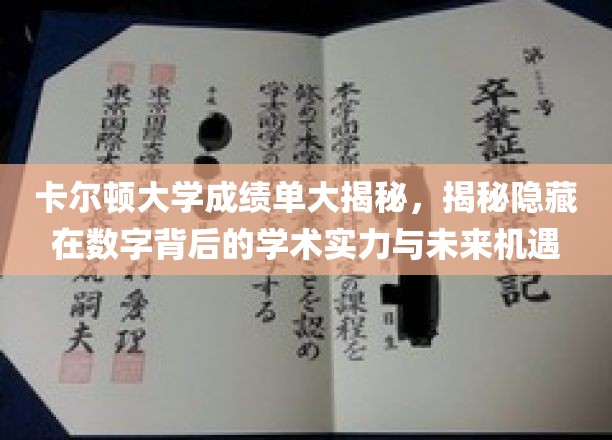 卡尔顿大学成绩单大揭秘，揭秘隐藏
在数字背后的学术实力与未来机遇
第 号
卒業証 記
本学商学部 の課程を
修めて本学 とを認め
学士(商学)の する
平成
東京国際大学 愛理
東京国際大 嗣夫